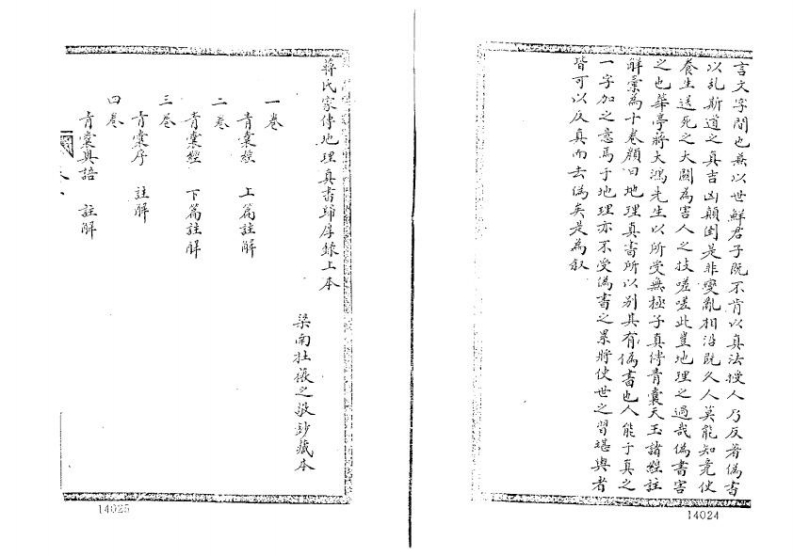 言文字間也無以世鮮君子既不肯以真法授人乃反著偽書
以乱斯道之真吉凶顛倒是非變亂相沿既久人莫能知竟使
養生送死之大關為害人之技嗟嗟此豈地理之過哉偽書害
之也華亭蔣大鴻先生以所受無極子真傳青囊天玉諸經註
解彙為十卷顏曰地理真書所以別其有偽書也人能于真之
一字加之意焉于地理亦不受偽書之累將使世之習堪輿者
皆可以反真而去偽矣是為叙
14024
蔣氏家傳地理真書歸厚錄上本
梁南杜張之敬抄藏本
一卷
青囊經 上篇註解
二卷
青囊經 下篇註解
三卷
青囊序 註解
四卷
青囊奧語 註解
14025